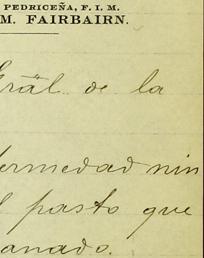 PEDRICEÑA, F. I. M.
M. FAIRBAIRN.
Gräl. de la
fermedad nin
l pasto que
anado.